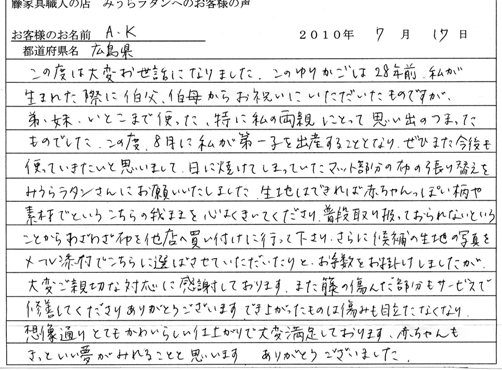 藤家具職人の店 みうらラタンへのお客様の声
お客様のお名前 A.K 2010年 7月 17日
都道府県名 広島県
この度は大変お世話になりました。このゆりかごは28年前、私が
生まれた際に伯父、伯母からお祝いにいただいたものですが、
弟、妹、いとこまで使った、特に私の両親にとって思い出のつまった
ものでした。この度、8月に私が第一子を出産することとなり、ぜひまた今後も
使っていきたいと思いまして、日に焼けてしまっていたマット部分の布の張り替えを
みうらラタンさんにお願いいたしました。生地はできれば赤ちゃんっぽい柄や
素材でというこちらの我ままを心よくきいてくださり、普段取り扱っておられないという
ことからわざわざ布を他店へ買い付けに行って下さり、さらに候補の生地の写真を
メール添付でこちらに選ばさせていただいたりと、お手数をお掛けしましたが、
大変ご親切な対応に感謝しております。また籐の傷んだ部分もサービスで
修善してくださりありがとうございます。でき上がったものは傷みも目立たなくなり、
想像通りとてもかわいらしい仕上がりで大変満足しております。赤ちゃんも
きっといい夢がみれることと思います ありがとうございました。